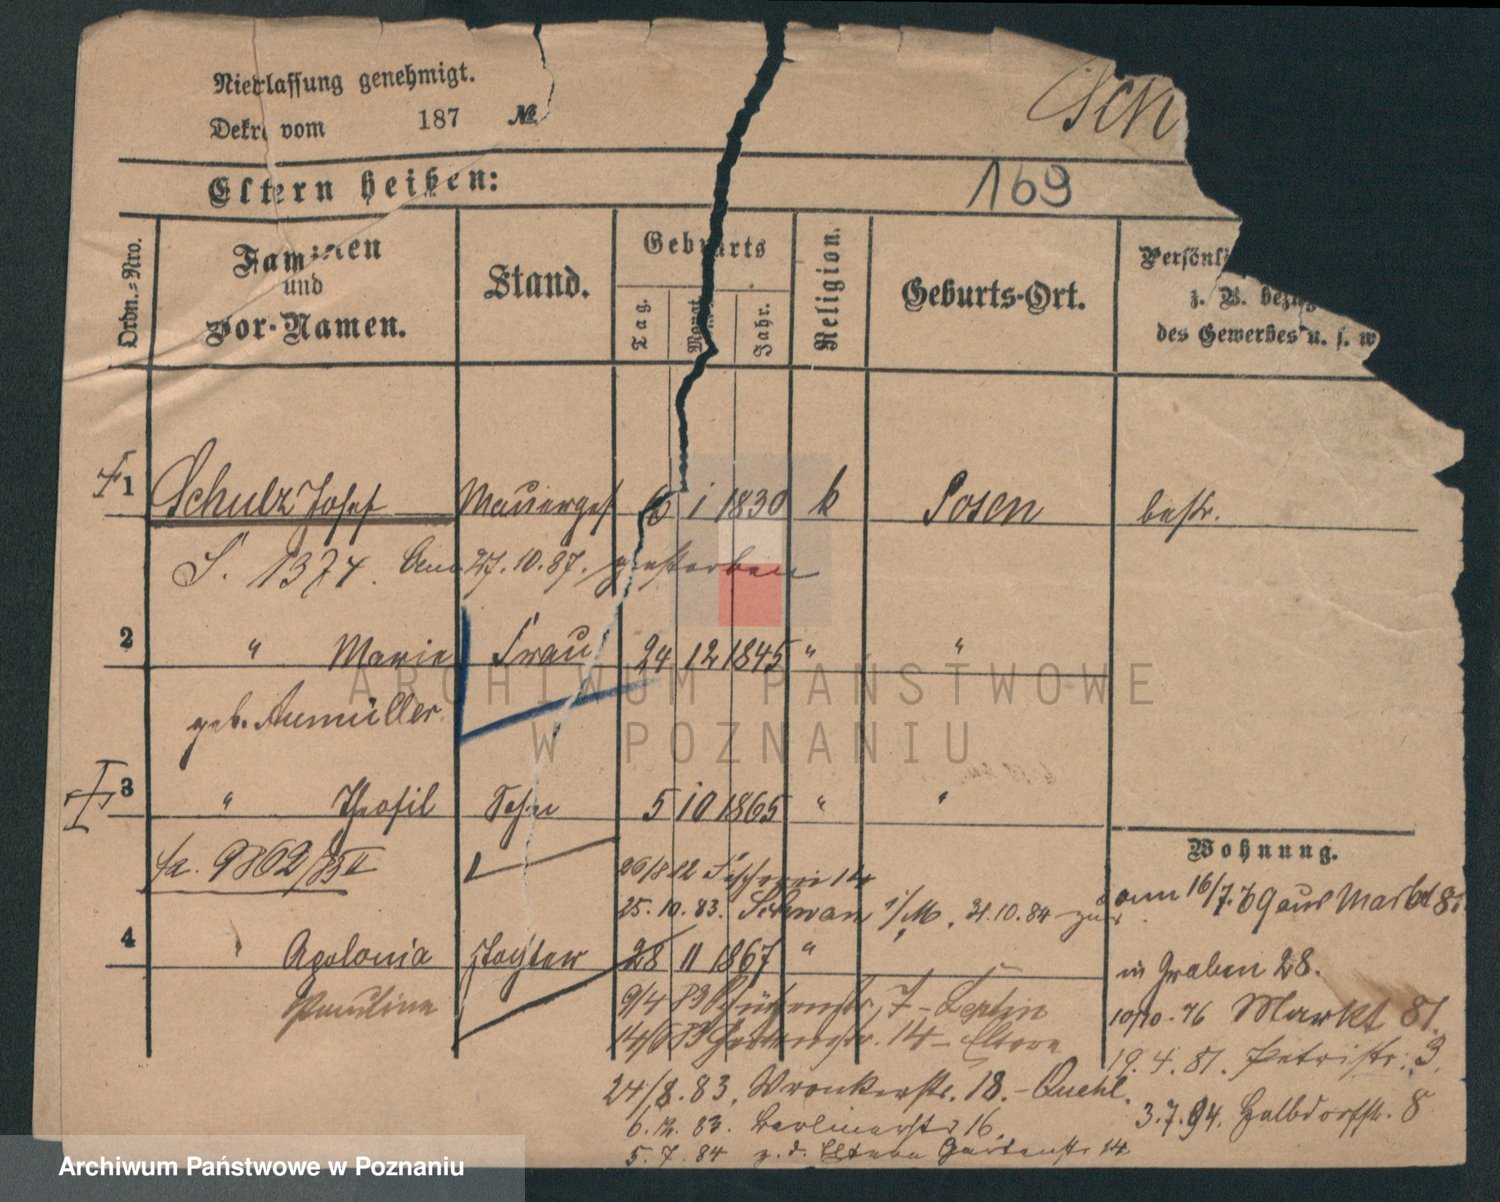 Niederlassung genehmigt.
Dekret vom 187 №
Sch
Eltern heißen:
169
Ordn.-Nro.
Familien
und
Vor-Namen.
Stand.
Geburts
Tag. Monat. Jahr.
Religion.
Geburts-Ort.
Persönli
z. B. bezüg
des Gewerbes u. s. w
1 Schulz Josef Mauerges 6 1 1830 k Posen bestr.
S. 1374. Am 27.10.87. gestorben
2 " Marie Frau 24 12 1845 " "
geb. Aumüller
3 " Theofil Sohn 5 10 1865 " "
Wohnung.
fa. 9862/85 II
26/8 82 Fischerei 14
25.10.83. Schwan i/M. 31.10.84 zur
am 16/7.79 aus Markt 8
4 " Apolonia Tochter 28 11 1867 "
in Graben 28.
Pauline
9/4 83 Schützenstr. 7
10/10.76 Markt 81.
14/6 83 Gartenstr. 14 - Eltern
19.4.81. Petristr. 3.
24/8.83. Wronkerstr. 18.
3.7.94. Halbdorfstr. 8
6.12.83. Berlinerstr 16.
5.7.84 z. d. Eltern Gartenstr 14
ARCHIWUM PAŃSTWOWE
W POZNANIU
Archiwum Państwowe w Poznaniu